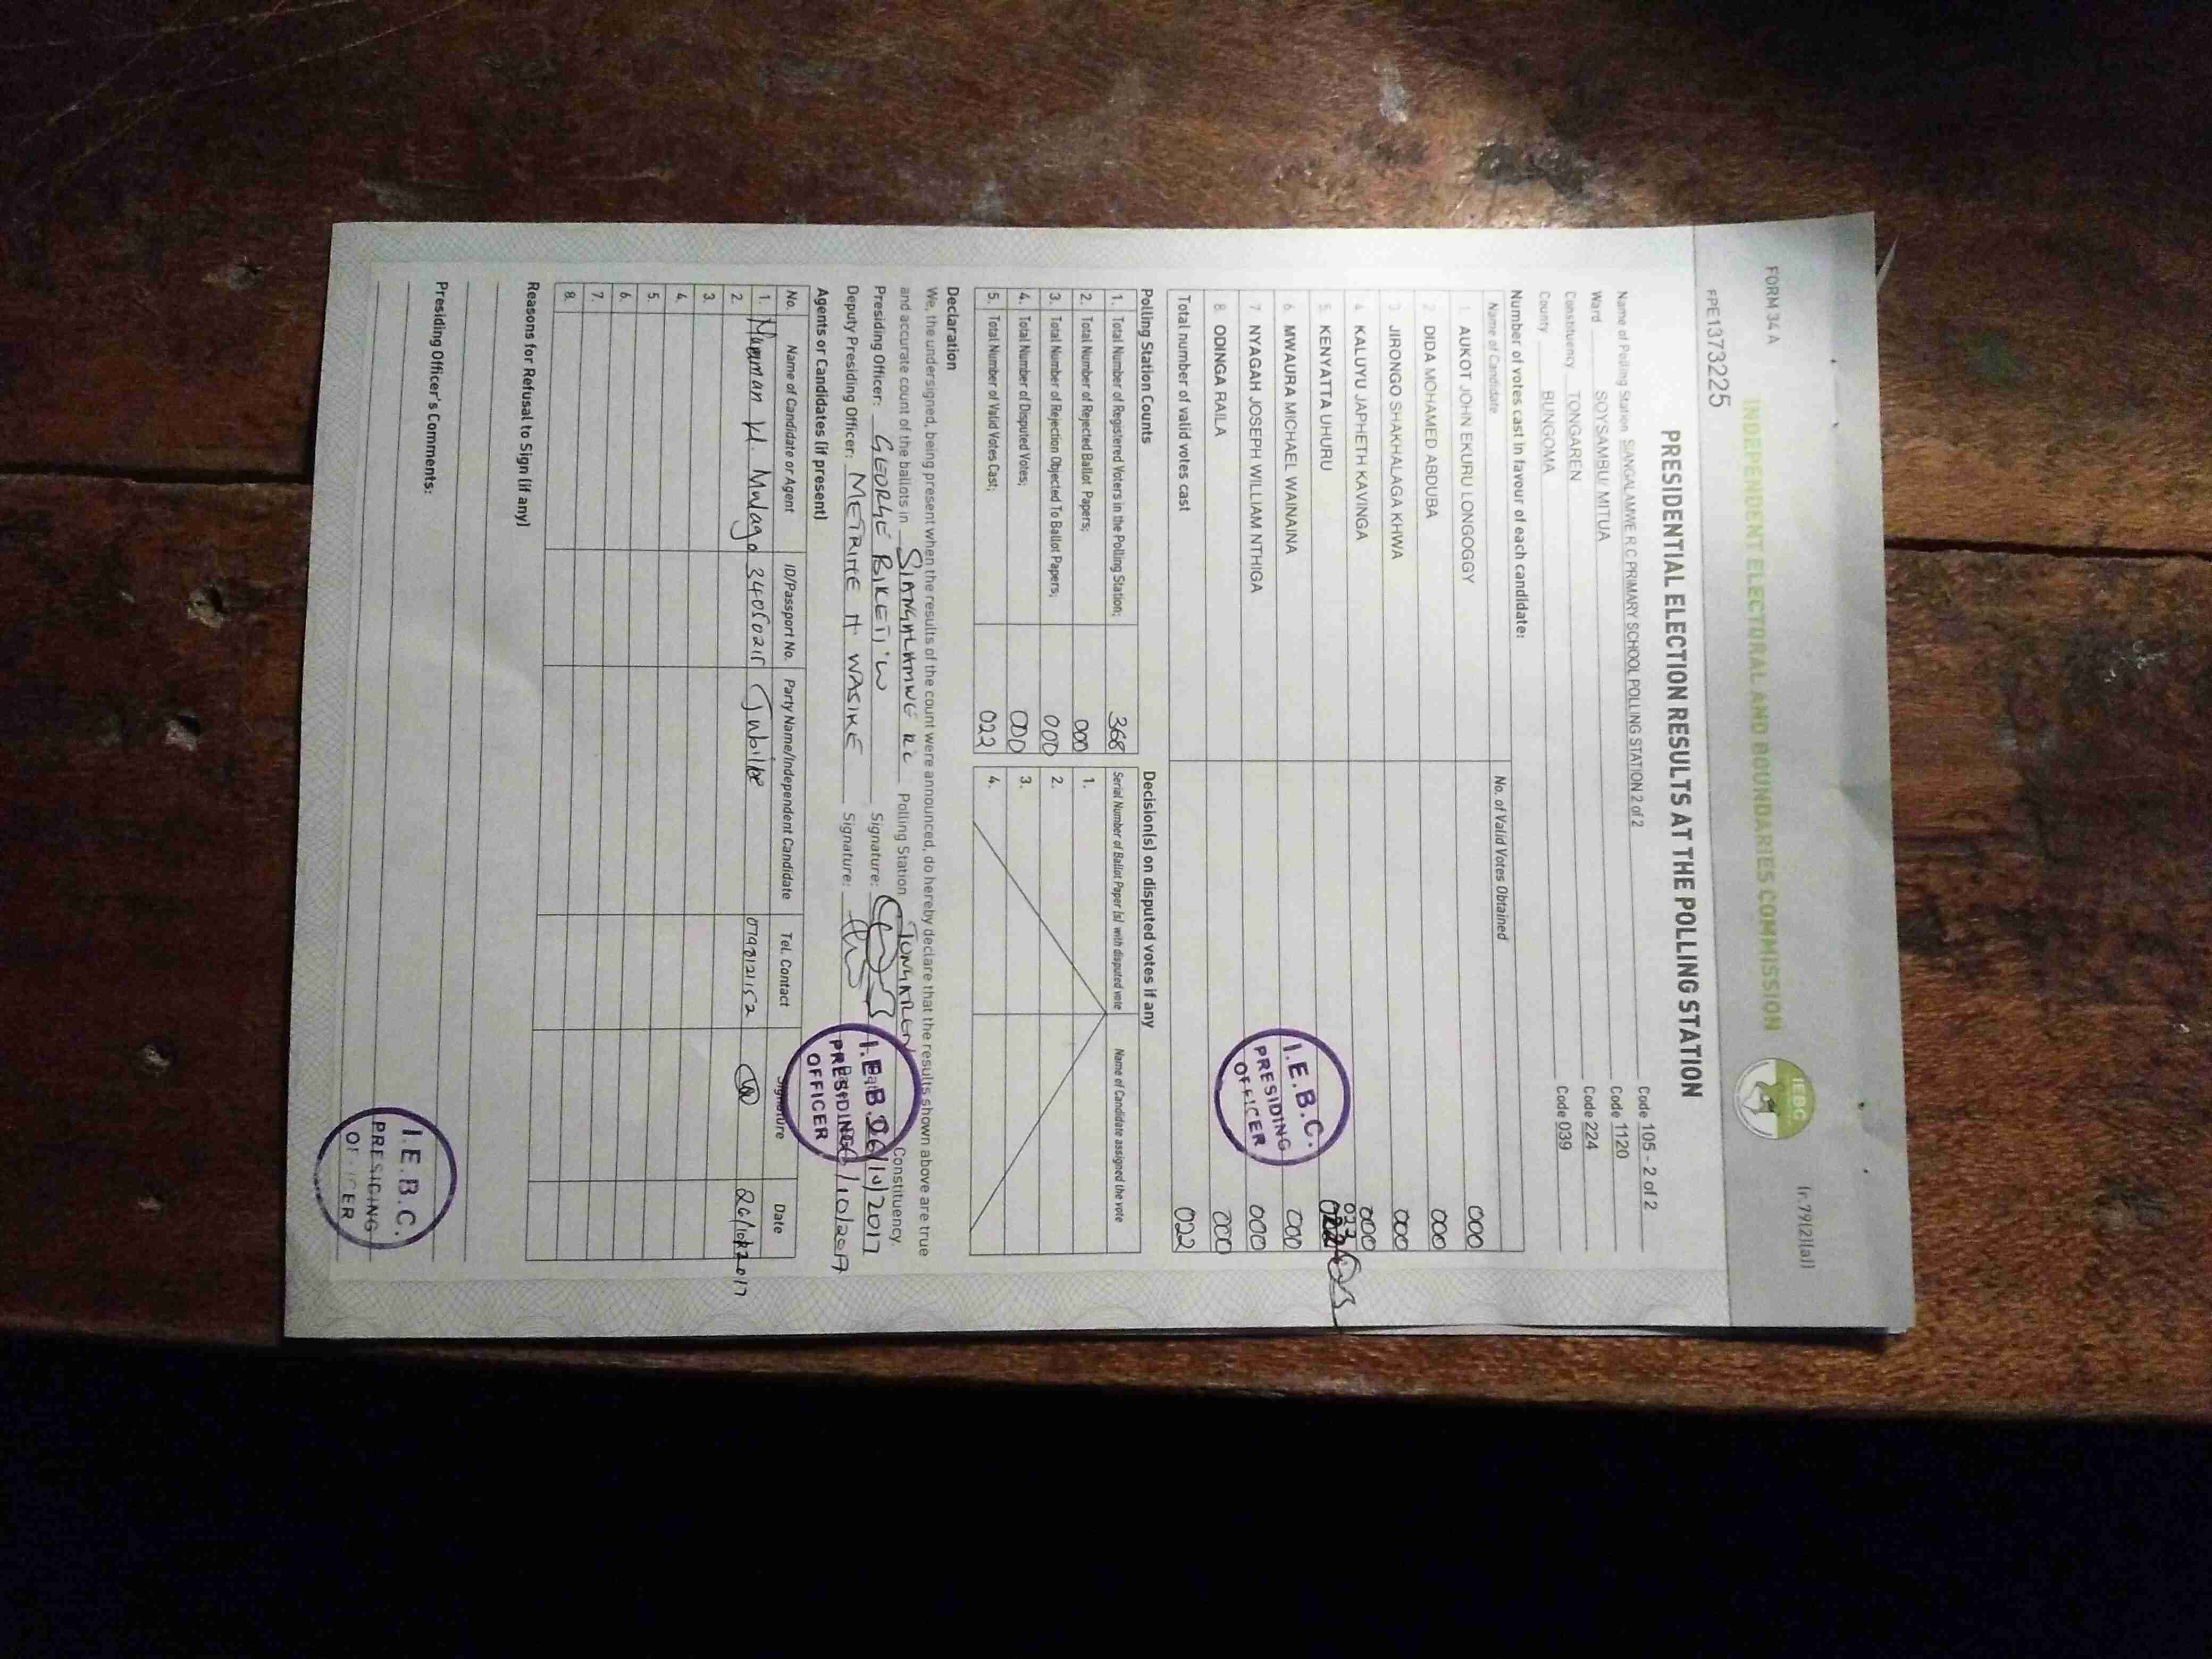 FORM 34 A
(r.79(2)(a))
INDEPENDENT ELECTORAL AND BOUNDARIES COMMISSION
IEBC
FPE1373225
PRESIDENTIAL ELECTION RESULTS AT THE POLLING STATION
Name of Polling Station SANGALAMWE R C PRIMARY SCHOOL POLLING STATION 2 of 2 Code 105 - 2 of 2
Ward SOYSAMBU/ MITUA Code 1120
Constituency TONGAREN Code 224
County BUNGOMA Code 039
Number of votes cast in favour of each candidate:
Name of Candidate No. of Valid Votes Obtained
1. AUKOT JOHN EKURU LONGOGGY 000
2 DIDA MOHAMED ABDUBA 000
3 JIRONGO SHAKHALAGA KHWA 000
4 KALUYU JAPHETH KAVINGA 000
5. KENYATTA UHURU 022
6 MWAURA MICHAEL WAINAINA 000
7 NYAGAH JOSEPH WILLIAM NTHIGA 000
8. ODINGA RAILA 000
Total number of valid votes cast 022
I.E.B.C.
PRESIDING
OFFICER
Polling Station Counts
1. Total Number of Registered Voters in the Polling Station; 368
2. Total Number of Rejected Ballot Papers; 000
3. Total Number of Rejection Objected To Ballot Papers; 000
4. Total Number of Disputed Votes; 000
5. Total Number of Valid Votes Cast; 022
Decision(s) on disputed votes if any
Serial Number of Ballot Paper (s) with disputed vote Name of Candidate assigned the vote
1.
2.
3.
4.
Declaration
We, the undersigned, being present when the results of the count were announced, do hereby declare that the results shown above are true
and accurate count of the ballots in SIANGALAMWE RC Polling Station TONGAREN Constituency.
Presiding Officer: GEORGE BIKETI W Signature: 26/10/2017
Deputy Presiding Officer: METRINE N WASIKE Signature: /10/2017
I.E.B.C.
PRESIDING
OFFICER
Agents or Candidates (if present)
No. Name of Candidate or Agent ID/Passport No. Party Name/Independent Candidate Tel. Contact Signature Date
1. W. Mulago Jubilee 0798121152 26/10/2017
2.
3.
4.
5.
6.
7.
8.
Reasons for Refusal to Sign (if any)
Presiding Officer's Comments:
I.E.B.C.
PRESIDING
OFFICER